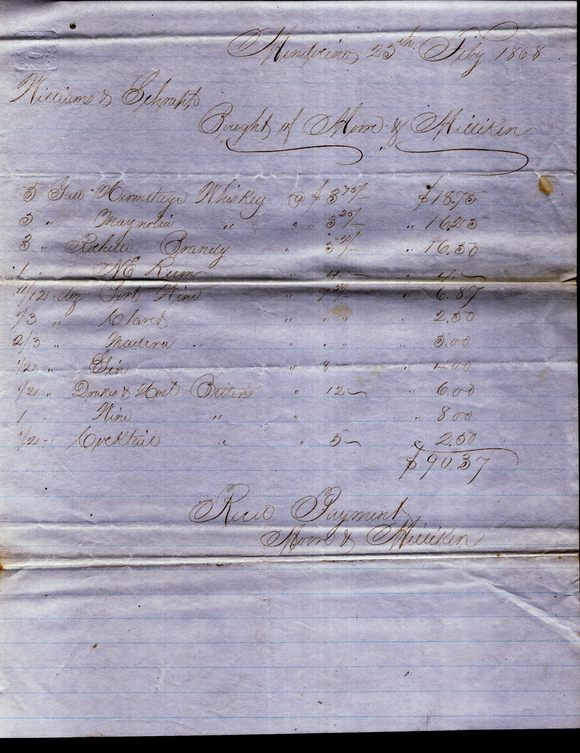 Mendocino, 25th Feby 1868
Williams &
Bought of Moore & Milliken
5 Gall Hermitage Whiskey @ $ 3 75/- $18.75
5 " Magnolia " " 3 25/- " 16.25
3 " Rochelle Brandy " 5 50/- " 16.50
1 " NE Rum " 4 - " 4 -
11/12 doz Port Wine " 7 50/- " 6.87
1/3 " Claret " " " 2.50
2/3 " Madeira " " " " " 5.00
1/2 " Gin " 8 - 4.00
1/2 " Drakes & Host Bitters " 12 - " 6.00
1 " Wine " " " 8.00
1/2 " Cocktail " " 5 - 2.50
$90.37
Recd Payment
Moore & Milliken